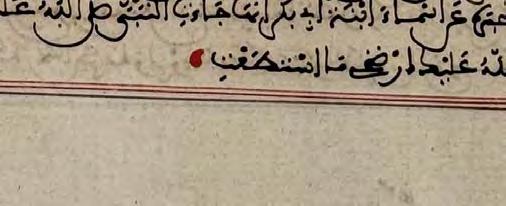 عن اسماء ابنة ابي بكر انها جاءت النبي صلى الله
الله عليك ارضخي ما استطعت